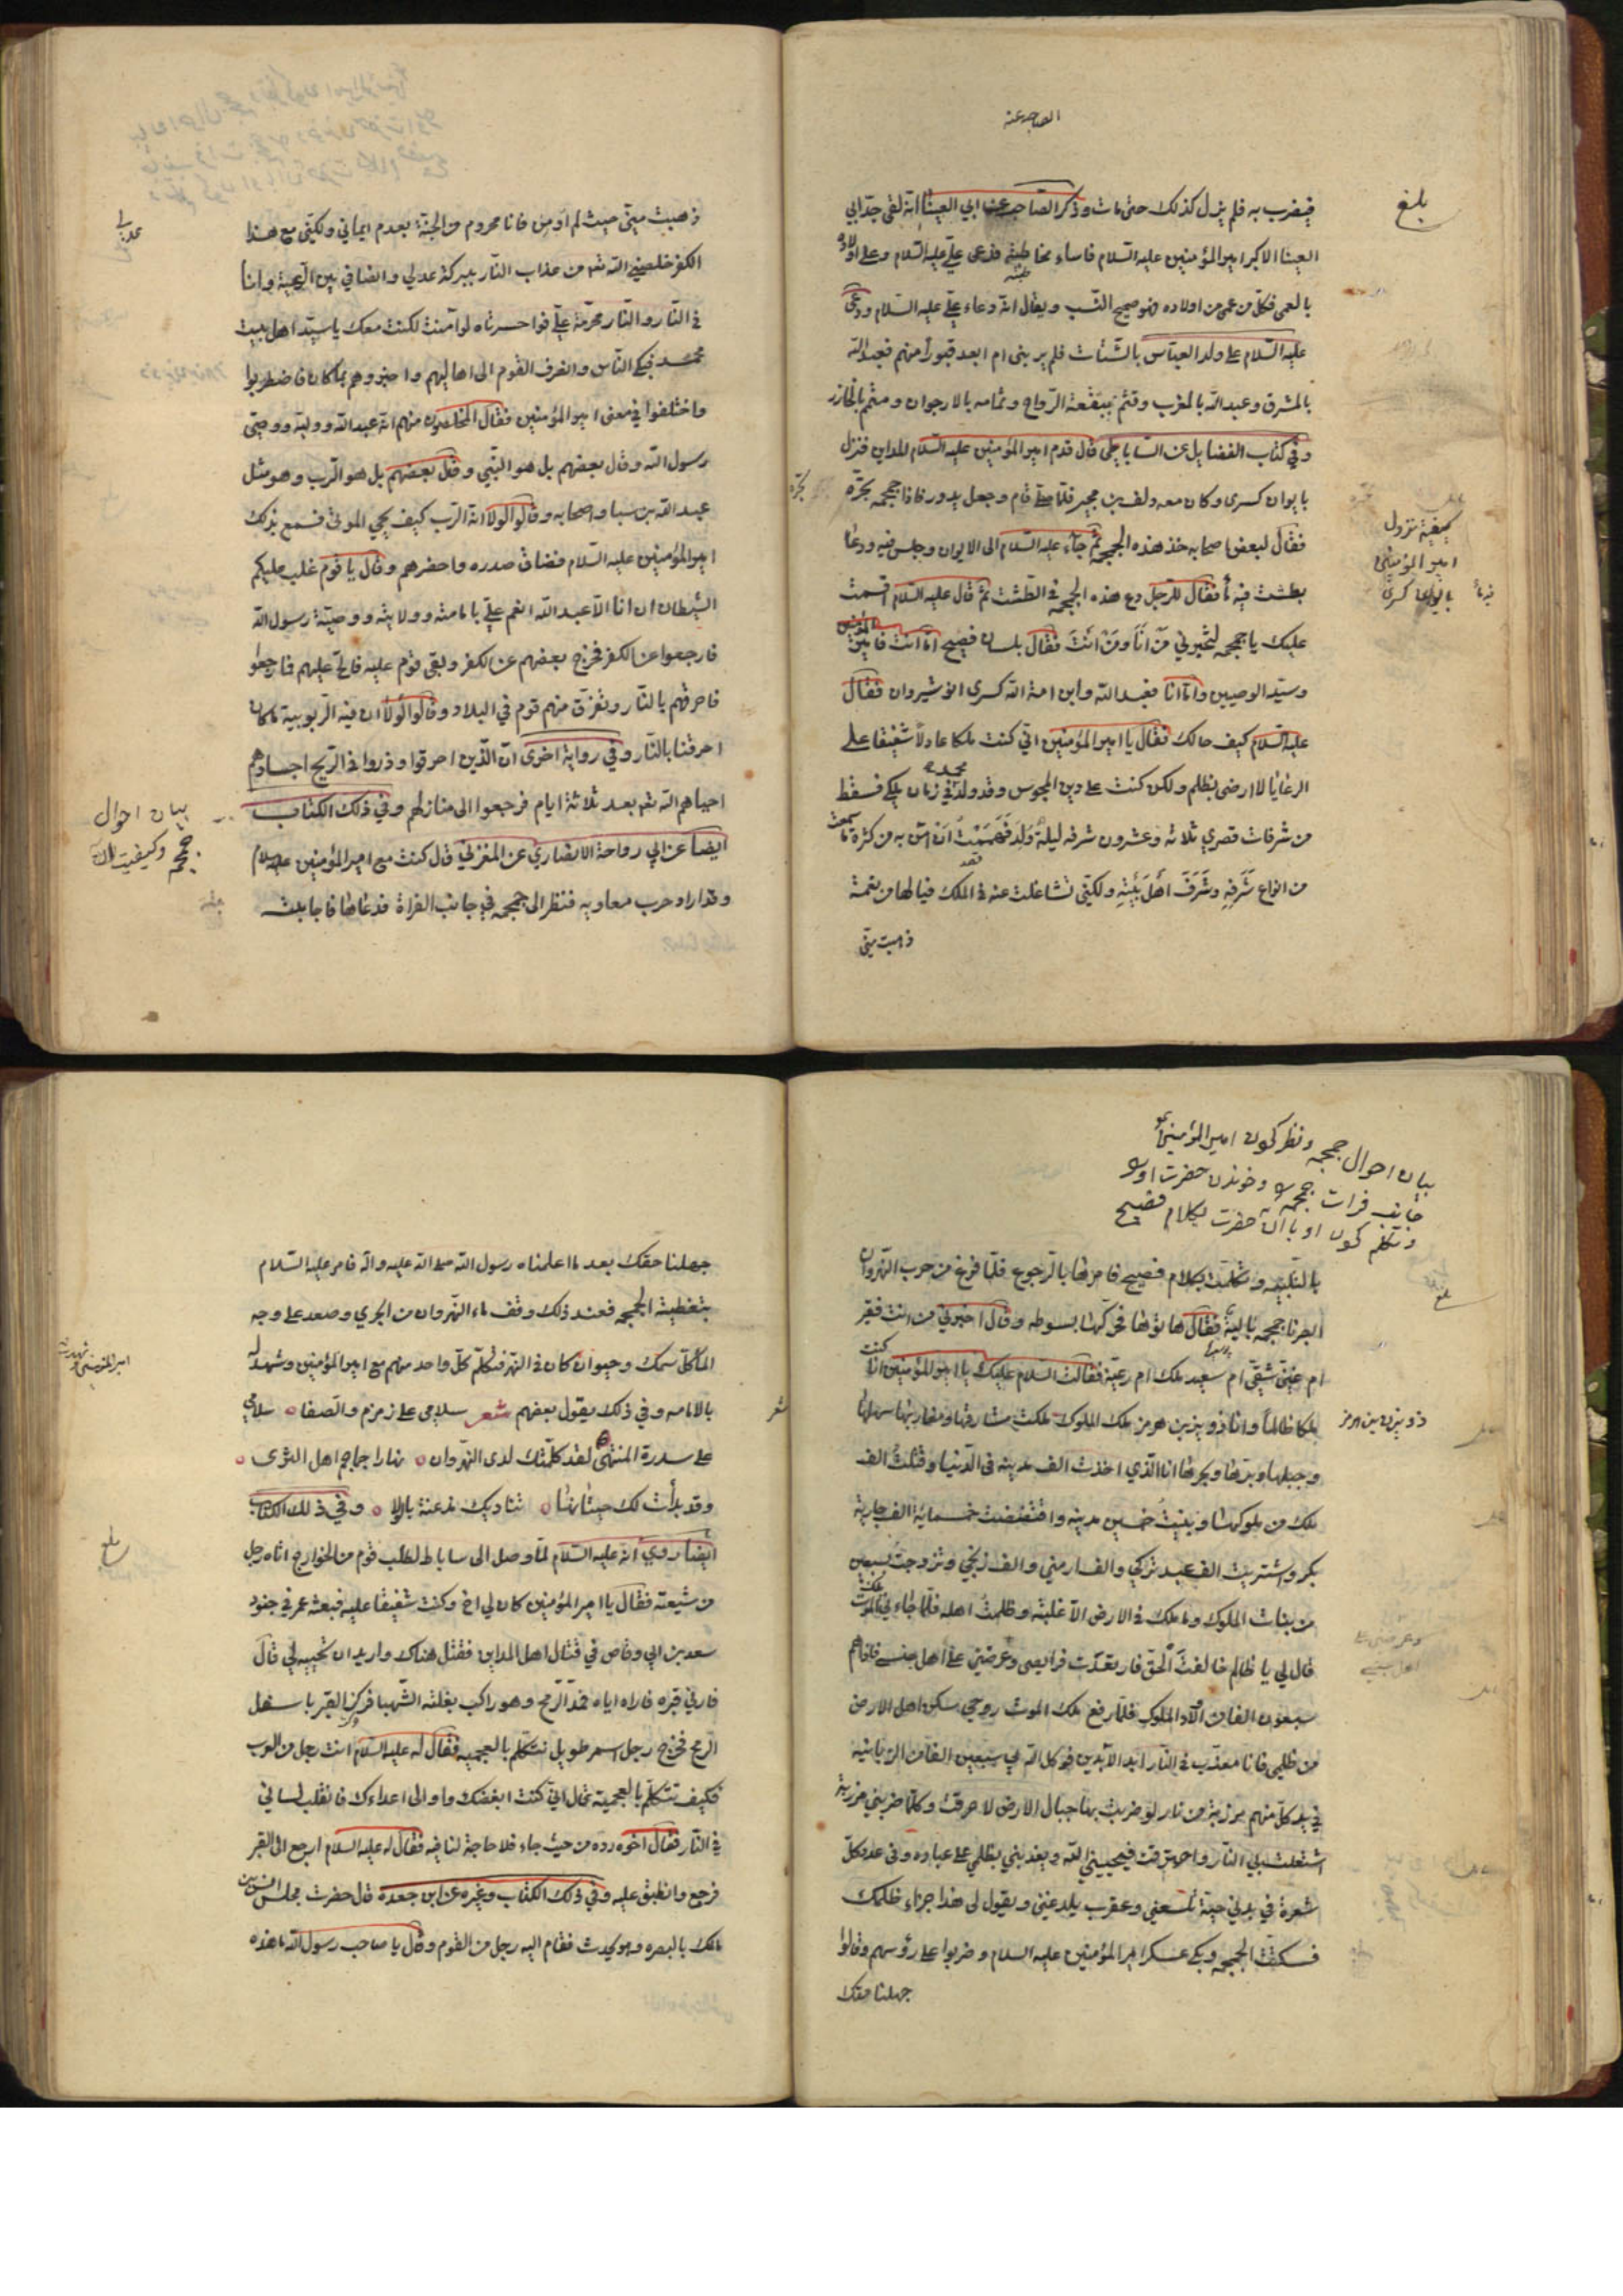 الصاحب عنه
فيضرب به فلم يزل كذلك حتى مات وذكر الصاحب عن ابي العينا انه لقى جد ابي
بلغ
العينا الاكبر امير المؤمنين عليه السلام فاساء مخاطبته فدعى علي عليه السلام وعلى اولاده
بالعمى فكل من عمى من اولاده فهو صحيح النسب ويقال انه دعاء علي عليه السلام ودعى
عليه السلام على ولد العباس بالشتات فلم ير بنى ام ابعد قبوراً منهم فعبد الله
بالمشرق وعبد الله بالمغرب وقثم بمنفعة الرواح وثمامه بالارجوان ومتمم بالخازر
وفي كتاب الفضايل عن الساباطي قال قدم امير المؤمنين عليه السلام المداين فنزل
بايوان كسرى وكان معه دلف بن مجير فلما صلى قام وجعل يدور فاذا جمجمه نخره
كيفية نزول
امير المؤمنين
بايوان كسرى
فقال لبعض اصحابه خذ هذه الجمجمه ثم جاء عليه السلام الى الايوان وجلس فيه ودعا
بطشت فيه ماء فقال للرجل دع هذه الجمجمه في الطشت ثم قال عليه السلام اقسمت
عليك يا جمجمه لتخبرني من انا ومن انت فقال بلسان فصيح اما انت فامير المؤمنين
وسيد الوصيين واما انا فعبد الله وابن امة الله كسرى انوشيروان فقال
عليه السلام كيف حالك فقال يا امير المؤمنين اني كنت ملكا عادلاً شفيقا على
الرعايا لا ارضى بظلم ولكن كنت على دين المجوس وقد ولد محمد في زمان ملكي فسقط
من شرفات قصري ثلاثه وعشرون شرفه ليلة ولد فهممت ان امن به من كثرة ما سمعت
من انواع شرفه وشرف اهل بيته ولكني تشاغلت عنه في الملك فيا لها من نعمة
ذهبت مني
ذهبت مني حيث لم اومن فانا محروم من الجنة بعدم ايماني ولكني مع هذا
الكفر خلصني الله تعالى من عذاب النار ببركة عدلي وانصافي بين الرعية وانا
في النار والنار محرمة علي فواحسرتاه لو آمنت لكنت معك يا سيد اهل بيت
محمد فبكى الناس وانصرف القوم الى اهاليهم واخبروهم بما كان فاضطربوا
واختلفوا في معنى امير المؤمنين فقال المخلصون منهم انه عبد الله ووليه ووصي
رسول الله وقال بعضهم بل هو النبي وقال بعضهم بل هو الرب وهو مثل
عبد الله بن سبا واصحابه وقالوا لولا انه الرب كيف يحي الموتى فسمع بذلك
امير المؤمنين عليه السلام فضاق صدره واحضرهم وقال يا قوم غلب عليكم
الشيطان ان انا الا عبد الله انعم علي بامامته وولايته ووصية رسول الله
فارجعوا عن الكفر فخرج بعضهم عن الكفر وبقى قوم عليه فالح عليهم فما رجعوا
فاحرقهم بالنار وتفرق منهم قوم في البلاد وقالوا لولا ان فيه الربوبية ما كان
احرقنا بالنار وفي رواية اخرى ان الذين احرقوا وذروا في الريح اجسادهم
احياهم الله تعالى بعد ثلاثة ايام فرجعوا الى منازلهم وفي ذلك الكتاب
بيان احوال
جمجمه
ايضا عن ابي رواحة الانصاري عن المغربي قال كنت مع امير المؤمنين عليه السلام
وقد اراد حرب معاويه فنظر الى جمجمه في جانب الفراة فدعاها فاجابت
بيان احوال جمجمه ونظر كردن امير المؤمنين
جانب فرات جمجمه و خوندن حضرت اورا
وتكلم كردن او با آن حضرت بكلام فصيح
بالتلبيه وتكلمت بكلام فصيح فامرها بالرجوع فلما فرغ من حرب النهروان
ابصرنا جمجمه باليه فقال هاتوها فحركها بسوطه وقال اخبرني من انت فقير
ام غني شقي ام سعيد ملك ام رعية فقالت السلام عليك يا امير المؤمنين انا كنت
ملكا ظالما وانا ذويزين هرمز ملك الملوك ملكت مشارقها ومغاربها سهلها
ذويزن بن هرمز
وجبلها وبرها وبحرها انا الذي اخذت الف مدينه في الدنيا وقتلت الف
ملك من ملوكها وبنيت خمسين مدينه وافتضضت خمسماية الف جارية
بكر واشتريت الف عبد تركي والف ارمني والف زنجي وتزوجت بسبعين
من بنات الملوك وما ملك في الارض الا غلبته وظلمت اهله فلما جاءني ملك الموت
قال لي يا ظالم خالفت الحق فارتعدت فرايصي وعرضني على اهل حبسي فاذا هم
سبعون الفا من اولاد الملوك فلما رفع ملك الموت روحي سكن اهل الارض
من ظلمي فانا معذب في النار ابد الابدين فوكل الله لي سبعين الفا من الزبانيه
في يد كل منهم مرزبة من نار لو ضربت بها جبال الارض لاحرقت وكلما ضربني مرزبة
اشتعلت بي النار واحترقت فيحييني الله ويعذبني بظلمي على عباده وفي عدد كل
شعرة في بدني حية تلسعني وعقرب يلدغني ويقول لي هذا جزاء ظلمك
فسكتت الجمجمه وبكى عسكر امير المؤمنين عليه السلام وضربوا على رؤسهم وقالوا
جهلنا حقك
جهلنا حقك بعد ما اعلمناه رسول الله صلى الله عليه واله فامر عليه السلام
بتغطية الجمجمه فعند ذلك وقف ماء النهروان من الجري وصعد على وجه
الماء كل سمك وحيوان كان في النهر فتكلم كل واحد منهم مع امير المؤمنين وشهد له
بالامامه وفي ذلك يقول بعضهم شعر سلامي على زمزم والصفا سلامي
على سدرة المنتهى لقد كلمتك لدى النهروان نهارا جماجم اهل الثرى
وقد بدأت لك حيتانها تناديك مذعنة بالولا وفي ذلك الكتاب
ايضا روي انه عليه السلام لما وصل الى ساباط لطلب قوم من الخوارج اتاه رجل
من شيعته فقال يا امير المؤمنين كان لي اخ وكنت شفيقا عليه فبعثه عمر في جنود
سعد بن ابي وقاص في قتال اهل المداين فقتل هناك واريد ان تحييه لي قال
فارني قبره فاراه اياه فمد الرمح وهو راكب بغلته الشهبا فركز القبر باسفل
الرمح فخرج رجل اسمر طويل تتكلم بالعجميه فقال له عليه السلام انت رجل من العرب
فكيف تتكلم بالعجمية فقال اني كنت ابغضك واوالي اعداءك فانقلب لساني
في النار فقال اخوه رده من حيث جاء فلا حاجة لنا فيه فقال له عليه السلام ارجع الى القبر
فرجع وانطبق عليه وفي ذلك الكتاب وغيره عن ابن جعده قال حضرت مجلس انس بن
مالك بالبصره وهو يحدث فقام اليه رجل من القوم وقال يا صاحب رسول الله ما هذه